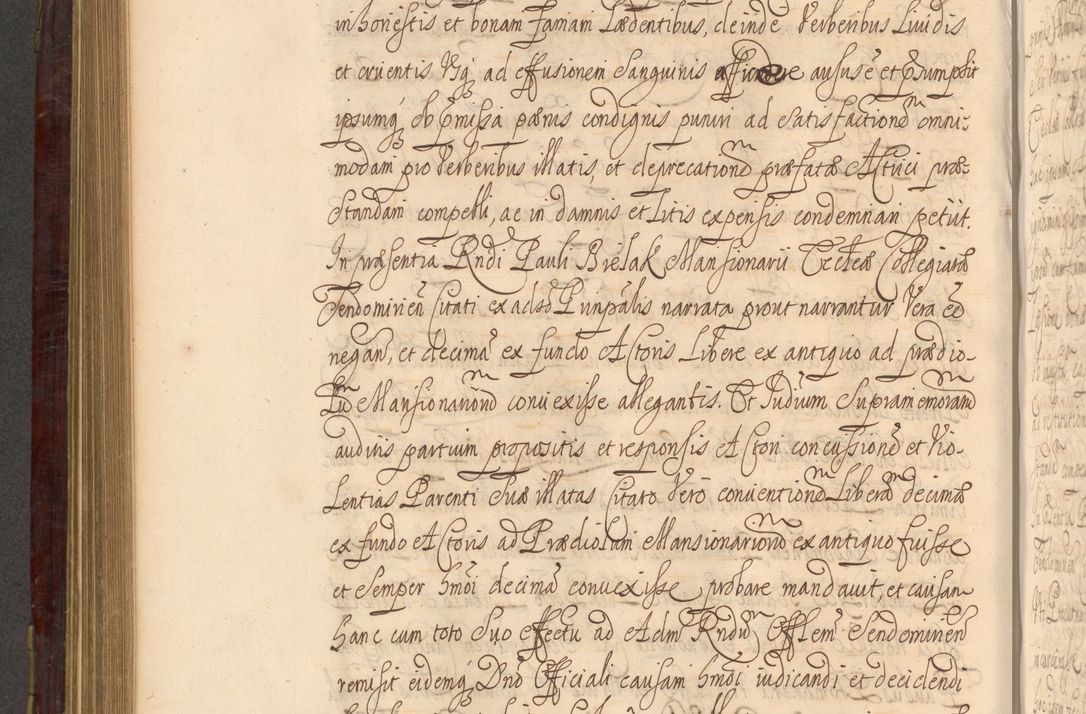 inhonestis et bonam famam Lædentibus, deinde Verberibus Lividis
et cruentis Usq3 ad effusionem Sanguinis afficere ausus e et Præsumpsit
ipsumq3 ob præmissa pænis condignis puniri ad Satisfactionem omni-
modam pro Verberibus illatis, et deprecationem præfatæ Actrici præ-
standam compelli, ac in damnis et Litis expensis condemnari petiit.
In præsentia Rndi Pauli Bielak Mansionarii Ecclæ Collegiatæ
Sendomirien Citati ex adso Principalis narrata prout narrantur Vera eē
negan, et decimā ex fundo Actoris Libere ex antiquo ad prædio-
Lū Mansionariorum convexisse allegantis. Et Judium Supramemorand
auditis partium propositis et responsis Actori concussionē et Vio-
Lentias Parenti Suæ illatas Citato Verō conventionem Liberam decimæ
ex fundo Actoris ad Prædiolum Mansionariorum ex antiquo fuisse
et Semper hmoi decimā convexisse probare mandavit, et causam
hanc cum toto Suo effectu ad Adm Rndum Offlem Sendomirien
remisit eidemq3 Dno Officiali causam hmoi iudicandi et decidendi